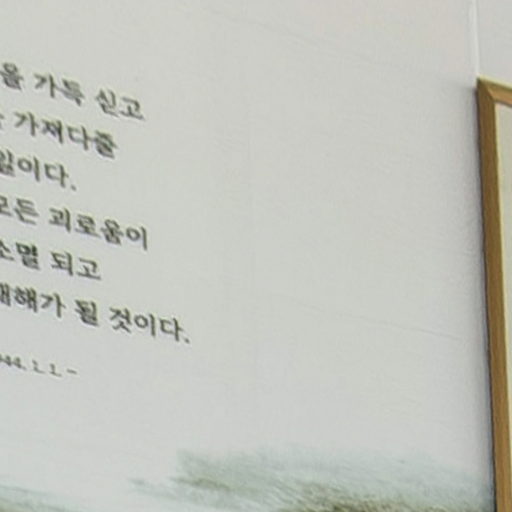 을 가득 싣고
가져다줄
일이다.
모든 괴로움이
소멸 되고
새해가 될 것이다.
944. 1. 1. -